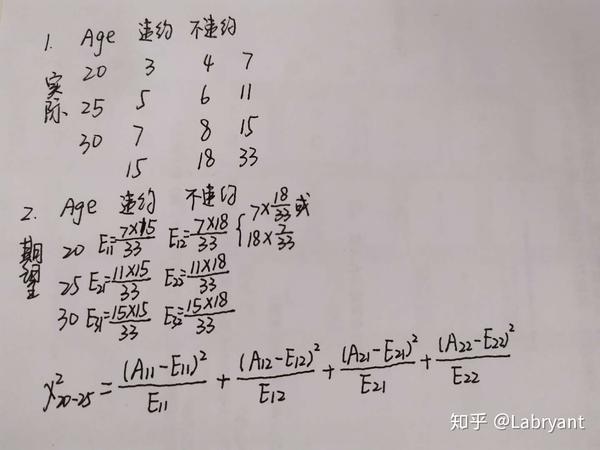 1. Age 违约 不违约
实际
20 3 4 7
25 5 6 11
30 7 8 15
15 18 33
2. Age 违约 不违约
期望
20 E11=7×15/33 E12=7×18/33 {7×18/33或
18×7/33
25 E21=11×15/33 E22=11×18/33
30 E31=15×15/33 E32=15×18/33
χ²20-25 = (A11-E11)²/E11 + (A12-E12)²/E12 + (A21-E21)²/E21 + (A22-E22)²/E22
知乎 @Labryant